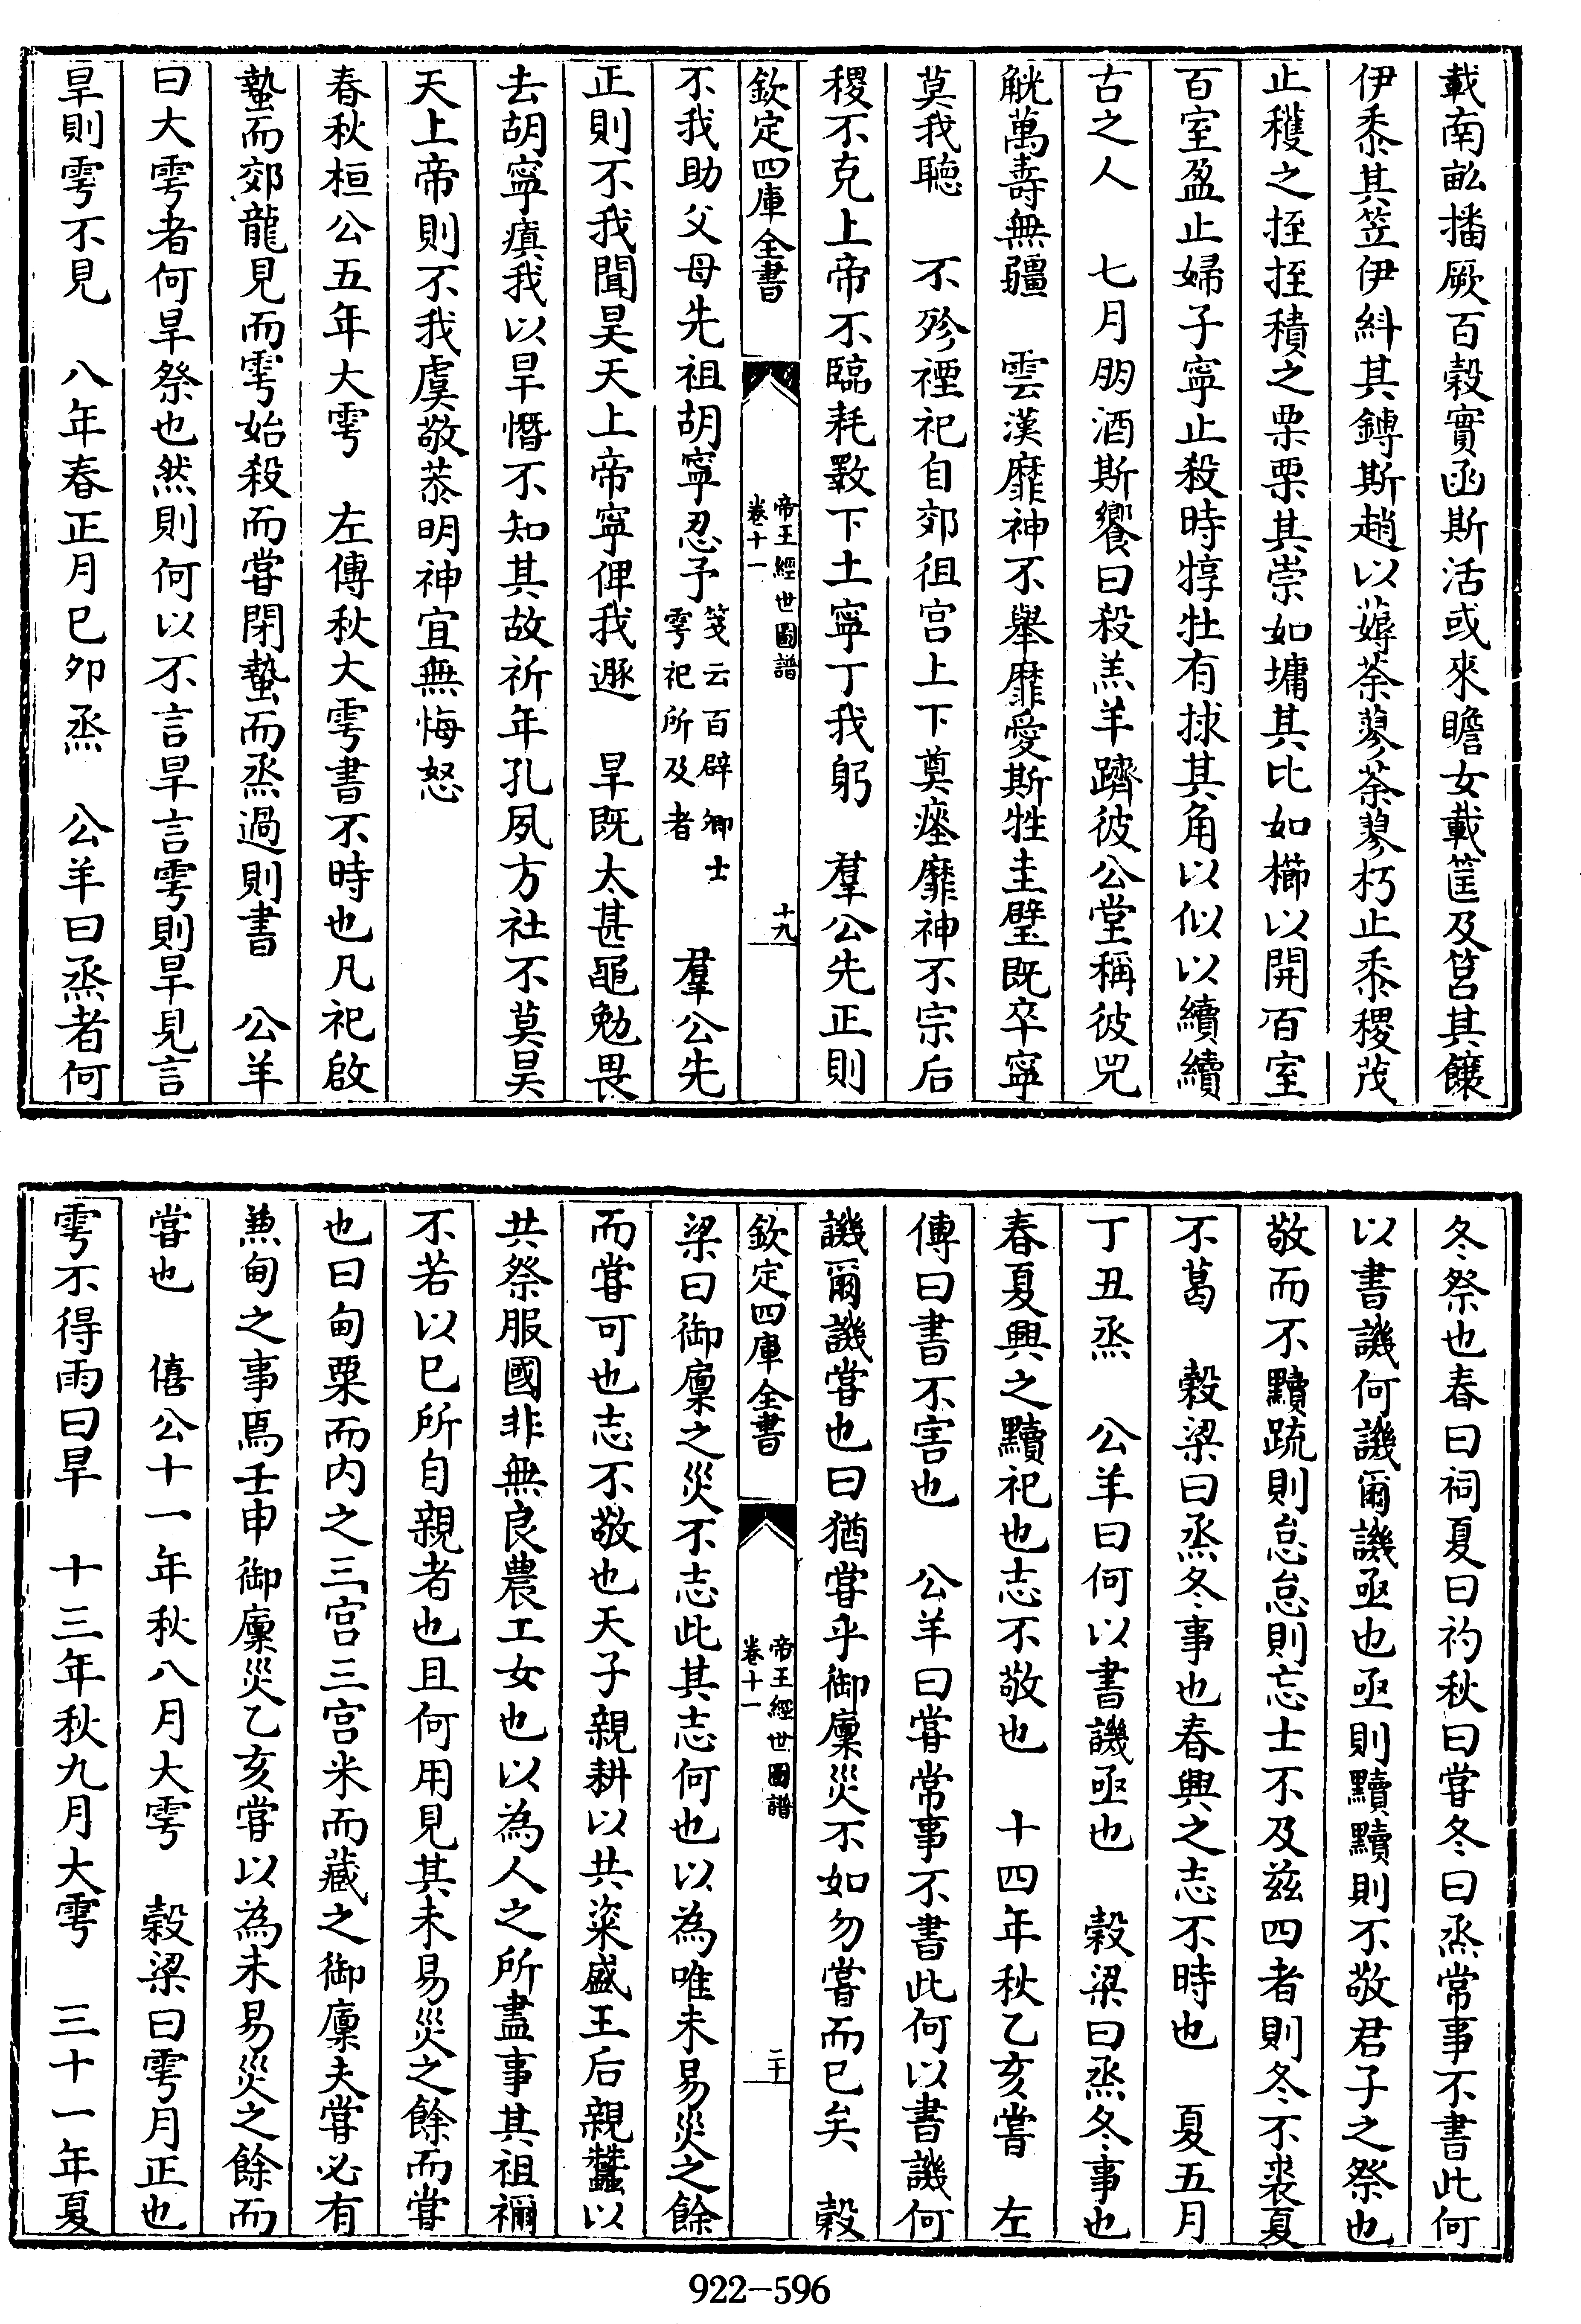 載南畝播厥百穀實函斯活或來瞻女載筐及筥其饟
伊黍其笠伊糾其鎛斯趙以薅荼蓼荼蓼朽止黍稷茂
止穫之挃挃積之栗栗其崇如墉其比如櫛以開百室
百室盈止婦子寧止殺時犉牡有捄其角以似以續續
古之人　七月朋酒斯饗曰殺羔羊躋彼公堂稱彼兕
觥萬壽無疆　雲漢靡神不舉靡愛斯牲圭璧既卒寧
莫我聽　不殄禋祀自郊徂宫上下奠瘞靡神不宗后
稷不克上帝不臨耗斁下土寧丁我躬　羣公先正則
欽定四庫全書
帝王經世圖譜
卷十一
十九
不我助父母先祖胡寧忍予
箋云百辟卿士
雩祀所及者
羣公先
正則不我聞昊天上帝寧俾我遯　旱既太甚黽勉畏
去胡寧瘨我以旱憯不知其故祈年孔夙方社不莫昊
天上帝則不我虞敬恭明神宜無悔怒
春秋桓公五年大雩　左傳秋大雩書不時也凡祀啟
蟄而郊龍見而雩始殺而嘗閉蟄而烝過則書　公羊
曰大雩者何旱祭也然則何以不言旱言雩則旱見言
旱則雩不見　八年春正月巳夘烝　公羊曰烝者何
冬祭也春曰祠夏曰礿秋曰嘗冬曰烝常事不書此何
以書譏何譏爾譏亟也亟則黷黷則不敬君子之祭也
敬而不黷疏則怠怠則忘士不及兹四者則冬不裘夏
不葛　穀梁曰烝冬事也春興之志不時也　夏五月
丁丑烝　公羊曰何以書譏亟也　穀梁曰烝冬事也
春夏興之黷祀也志不敬也　十四年秋乙亥嘗　左
傳曰書不害也　公羊曰嘗常事不書此何以書譏何
譏爾譏嘗也曰猶嘗乎御廩災不如勿嘗而巳矣　穀
欽定四庫全書
帝王經世圖譜
卷十一
二十
梁曰御廩之災不志此其志何也以為唯未易災之餘
而嘗可也志不敬也天子親耕以共粢盛王后親蠶以
共祭服國非無良農工女也以為人之所盡事其祖禰
不若以巳所自親者也且何用見其未易災之餘而嘗
也曰甸粟而内之三宫三宫米而藏之御廩夫嘗必有
兼甸之事焉壬申御廩災乙亥嘗以為未易災之餘而
嘗也　僖公十一年秋八月大雩　穀梁曰雩月正也
雩不得雨曰旱　十三年秋九月大雩　三十一年夏
922-596